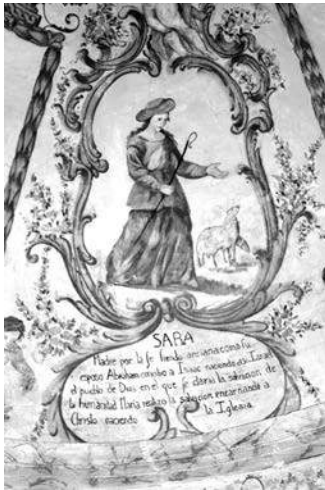 SARA
Madre por la fe siendo anciana como su
esposo Abraham concibio a Isaac naciendo asi Israel
el pueblo de Dios en el que se daria la salvacion de
la humanidad Maria realizo la salvacion encarnando a
Christo naciendo la Iglesia